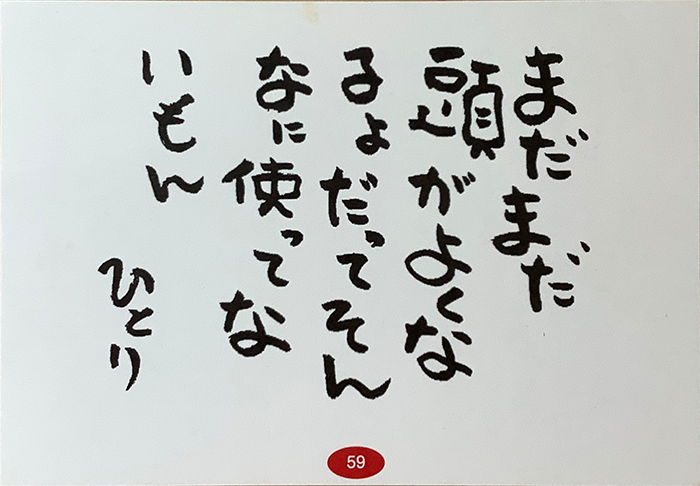 まだまだ
頭がよくな
るよだってそん
なに使ってな
いもん
ひとり
59